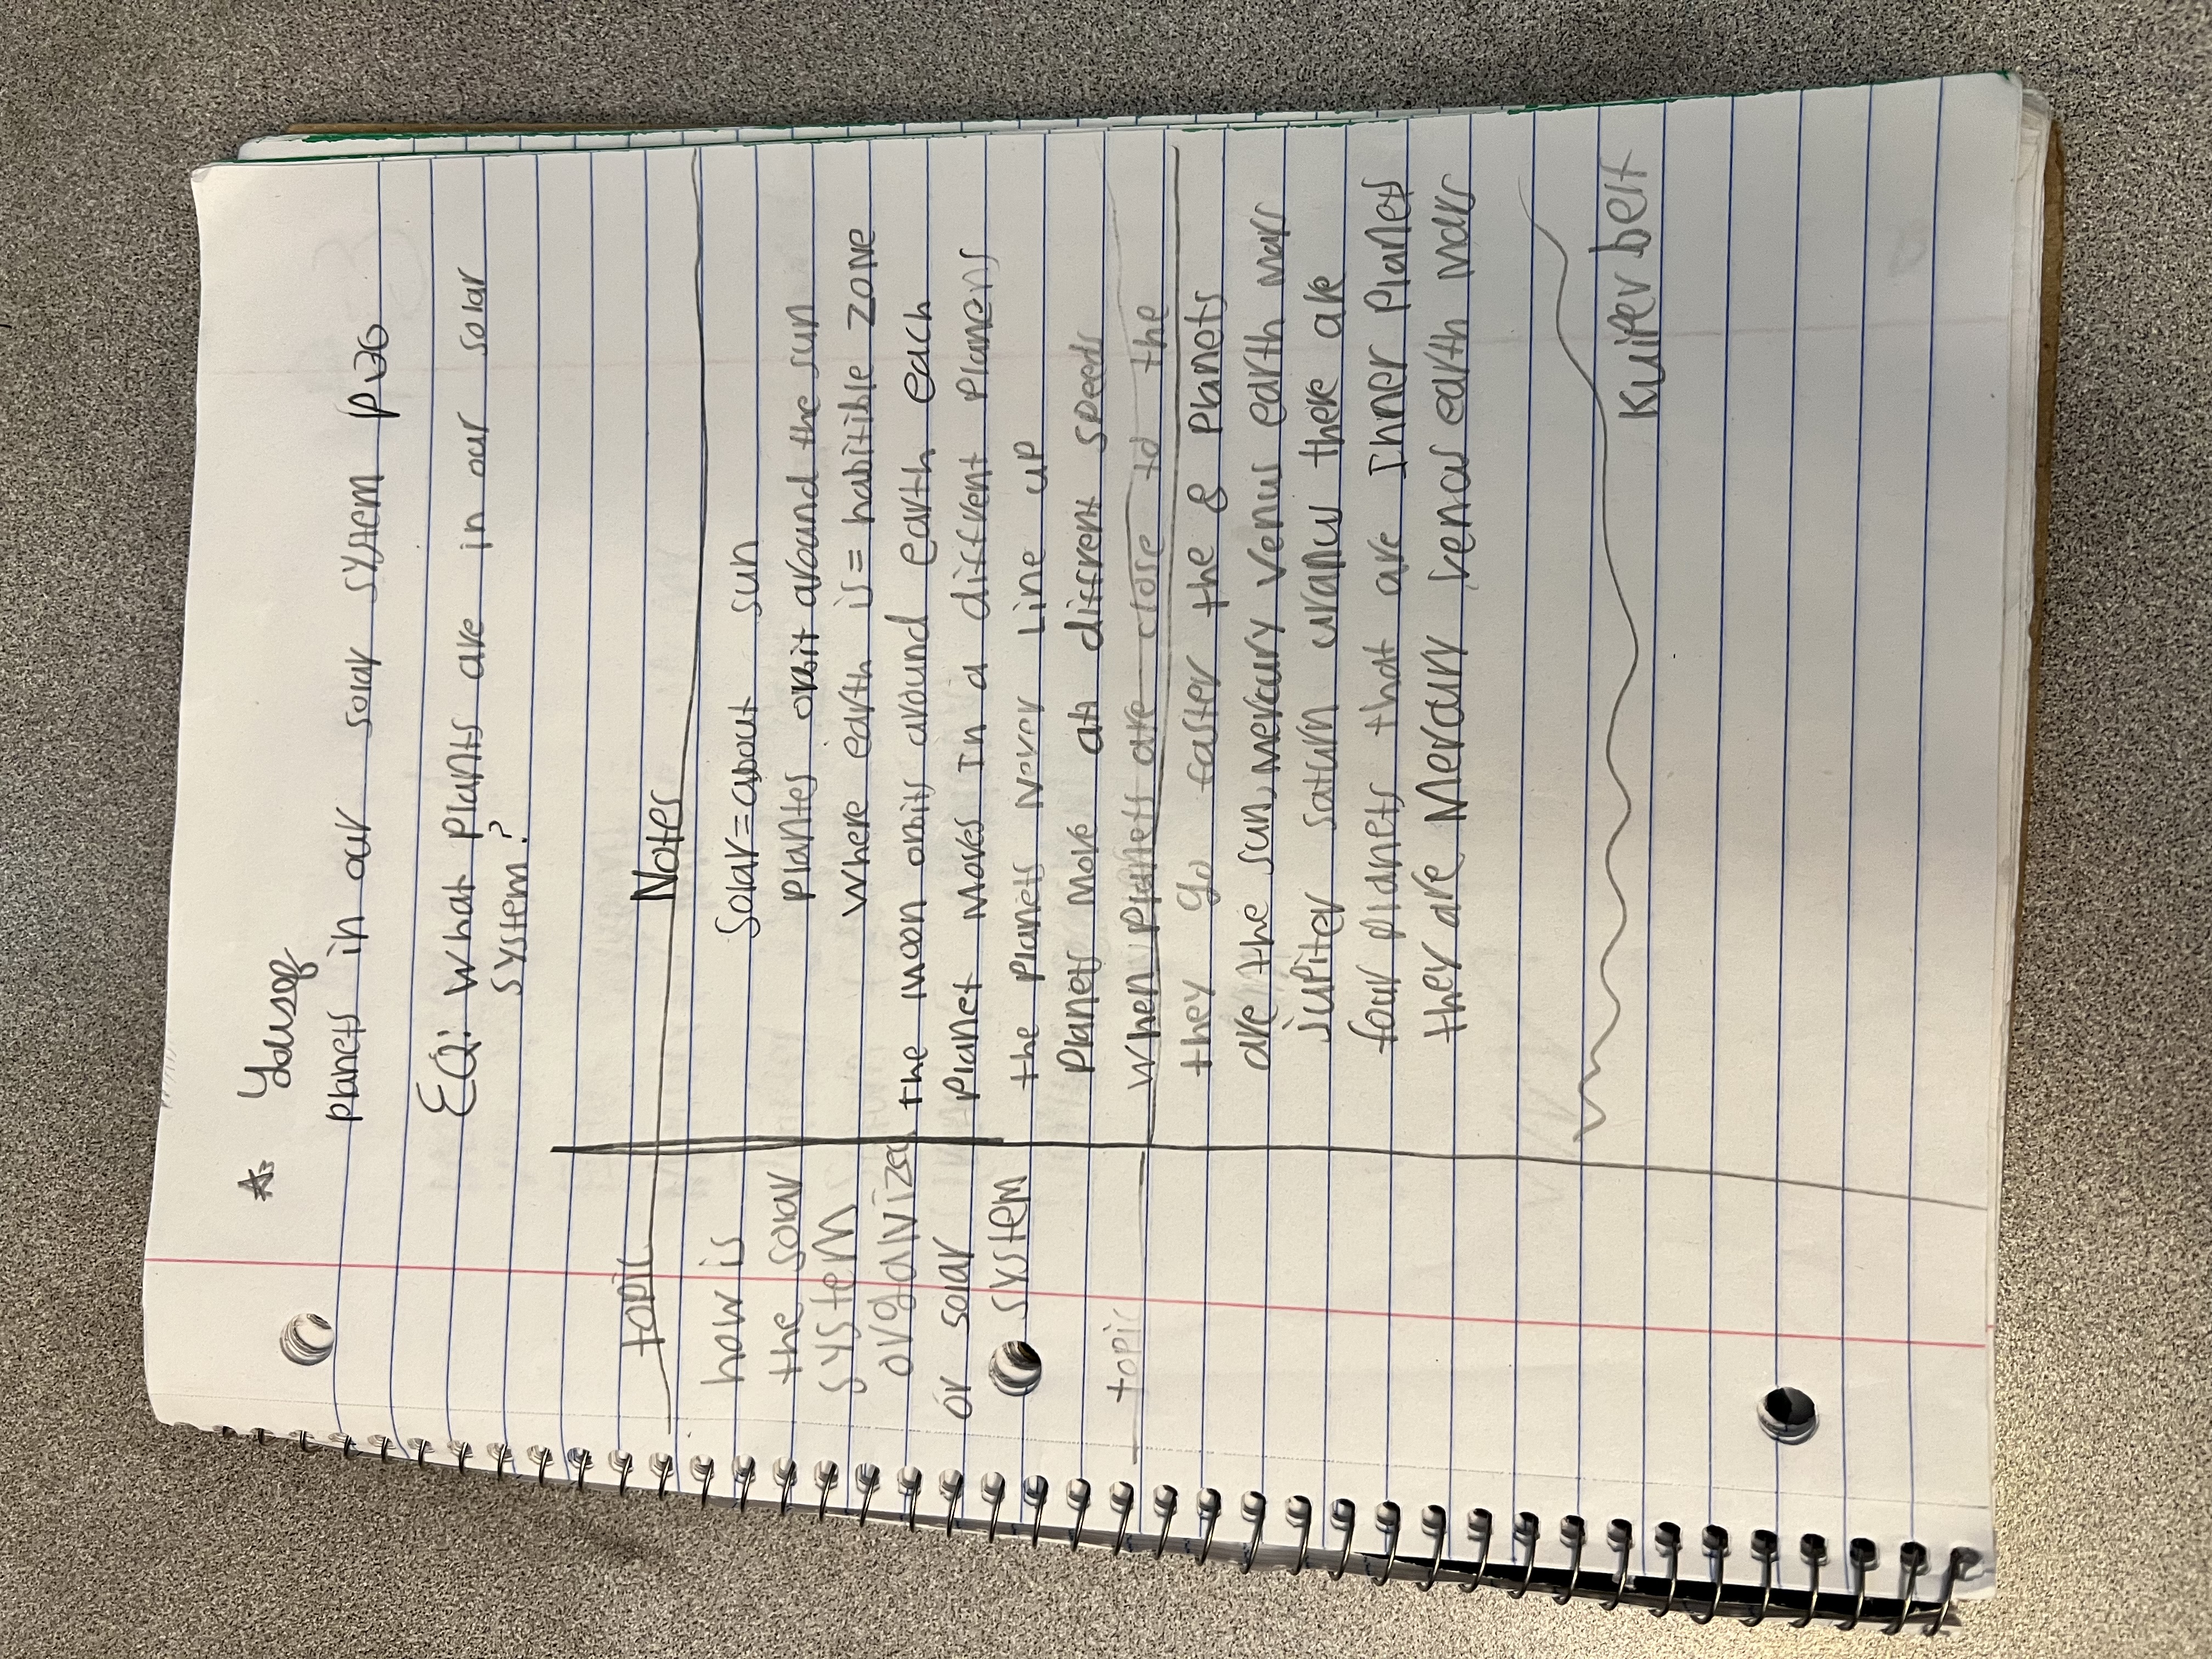 A: Yousef
planets in our solar system p26
EQ: What plants are in our solar
system?
topic
Notes
how is
the solar
system
organized
or solar
system
Solar=about sun
plantes orbit around the sun
where earth is= habitible zone
the moon orbits around earth each
planet moves in a diffrent planens
the planets never line up
planets move at diffrent speeds
topic
when planets are close to the
they go faster the 8 planets
are the sun, mercury venus earth mars
jupiter saturn uranus there are
four planets that are Inner planets
they are Mercury venos earth mars
Kuiper belt